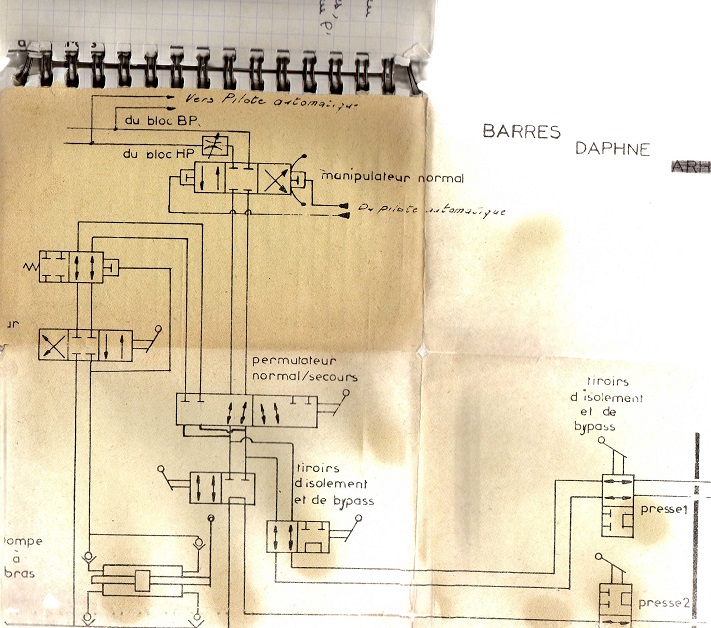 Vers Pilote automatique
du bloc BP.
du bloc HP
manipulateur normal
Du pilote automatique
BARRES
DAPHNE
ARH
permutateur
normal/secours
tiroirs
d'isolement
et de bypass
tiroirs
d'isolement
et de
bypass
presse1
presse2
pompe
à
bras